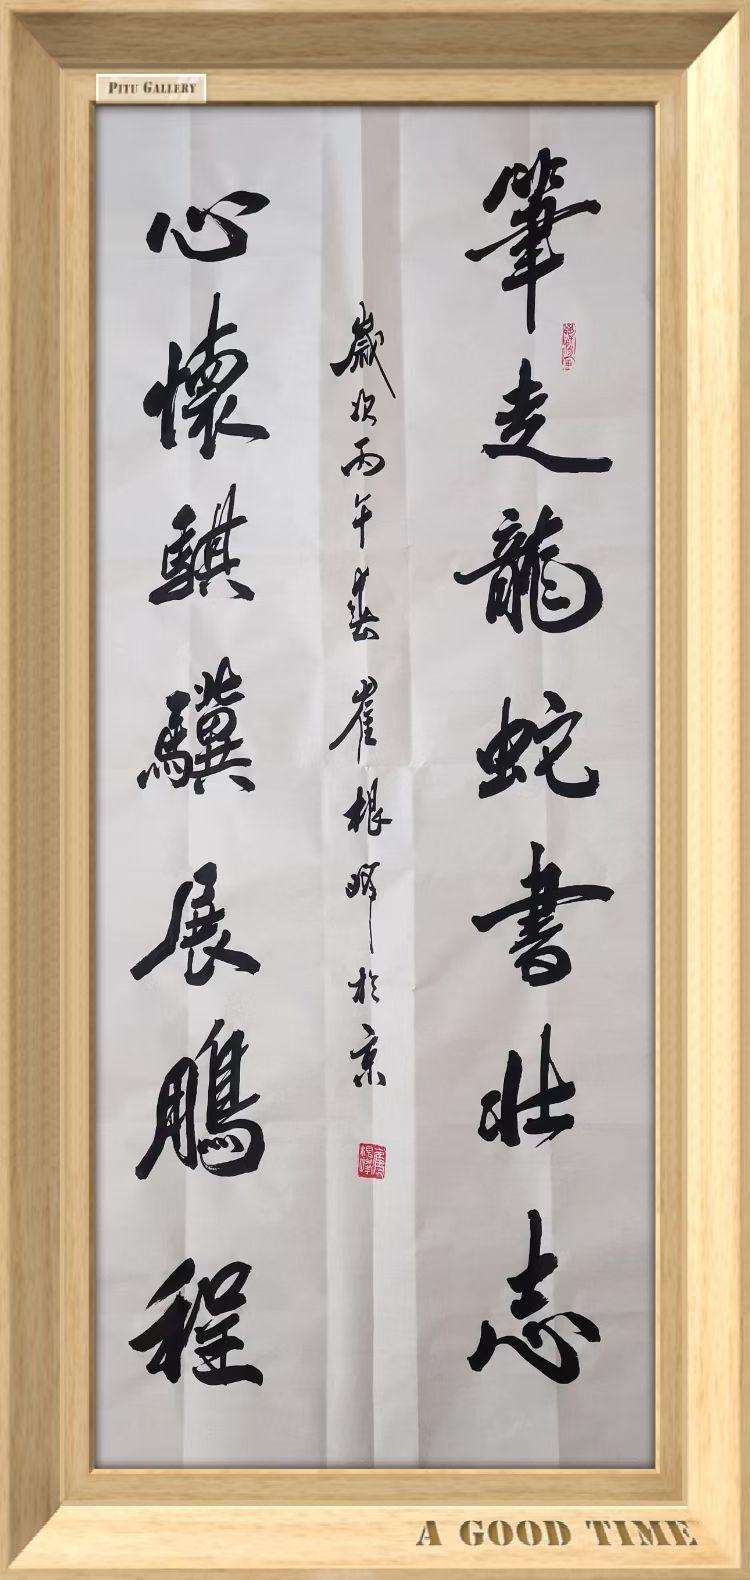 PITU GALLERY
筆走龍蛇書壯志
歲次丙午春崔根曄於京
心懷騏驥展鵬程
A GOOD TIME